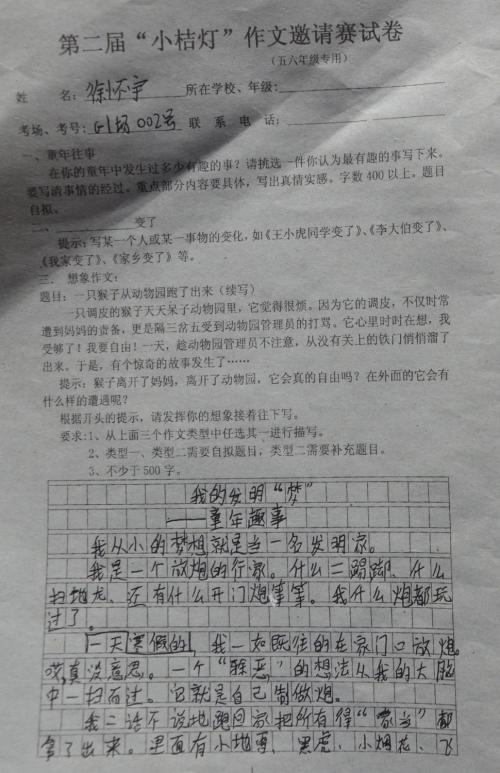 第二届“小桔灯”作文邀请赛试卷
（五六年级专用）
姓 名：徐怀宇 所在学校、年级：
考场、考号：G1场002号 联 系 电 话：
一、童年往事
在你的童年中发生过多少有趣的事？请挑选一件你认为最有趣的事写下来。
要写清事情的经过。重点部分内容要具体，写出真情实感。字数400以上。题目
自拟。
二、 变了
提示：写某一个人或某一事物的变化，如《王小虎同学变了》、《李大伯变了》、
《我家变了》、《家乡变了》等。
三． 想象作文：
题目：一只猴子从动物园跑了出来（续写）
一只调皮的猴子天天呆子动物园里，它觉得很烦。因为它的调皮，不仅时常
遭到妈妈的责备，更是隔三岔五受到动物园管理员的打骂。它心里时时在想，我
受够了！我要自由！一天，趁动物园管理员不注意，从没有关上的铁门悄悄溜了
出来。于是，有个惊奇的故事发生了……
提示：猴子离开了妈妈，离开了动物园，它会真的自由吗？在外面的它会有
什么样的遭遇呢？
根据开头的提示，请发挥你的想象接着往下写。
要求：1、从上面三个作文类型中任选其一进行描写。
2、类型一、类型二需要自拟题目，类型二需要补充题目。
3、不少于500字。
我的发明“梦”
——童年趣事
我从小的梦想就是当一名发明家。
我是一个放炮的行家。什么二踢脚、什么
扫地龙、还有什么开门炮等等。我什么炮都玩
过了。
一天寒假的，我一如既往的在家门口放炮。
哎，真没意思。一个“罪恶”的想法从我的大脑
中一扫而过。它就是自己制做炮。
我二话不说地跑回家把所有得“家当”都
拿了出来。里面有小地雷、黑虎、小烟花、飞